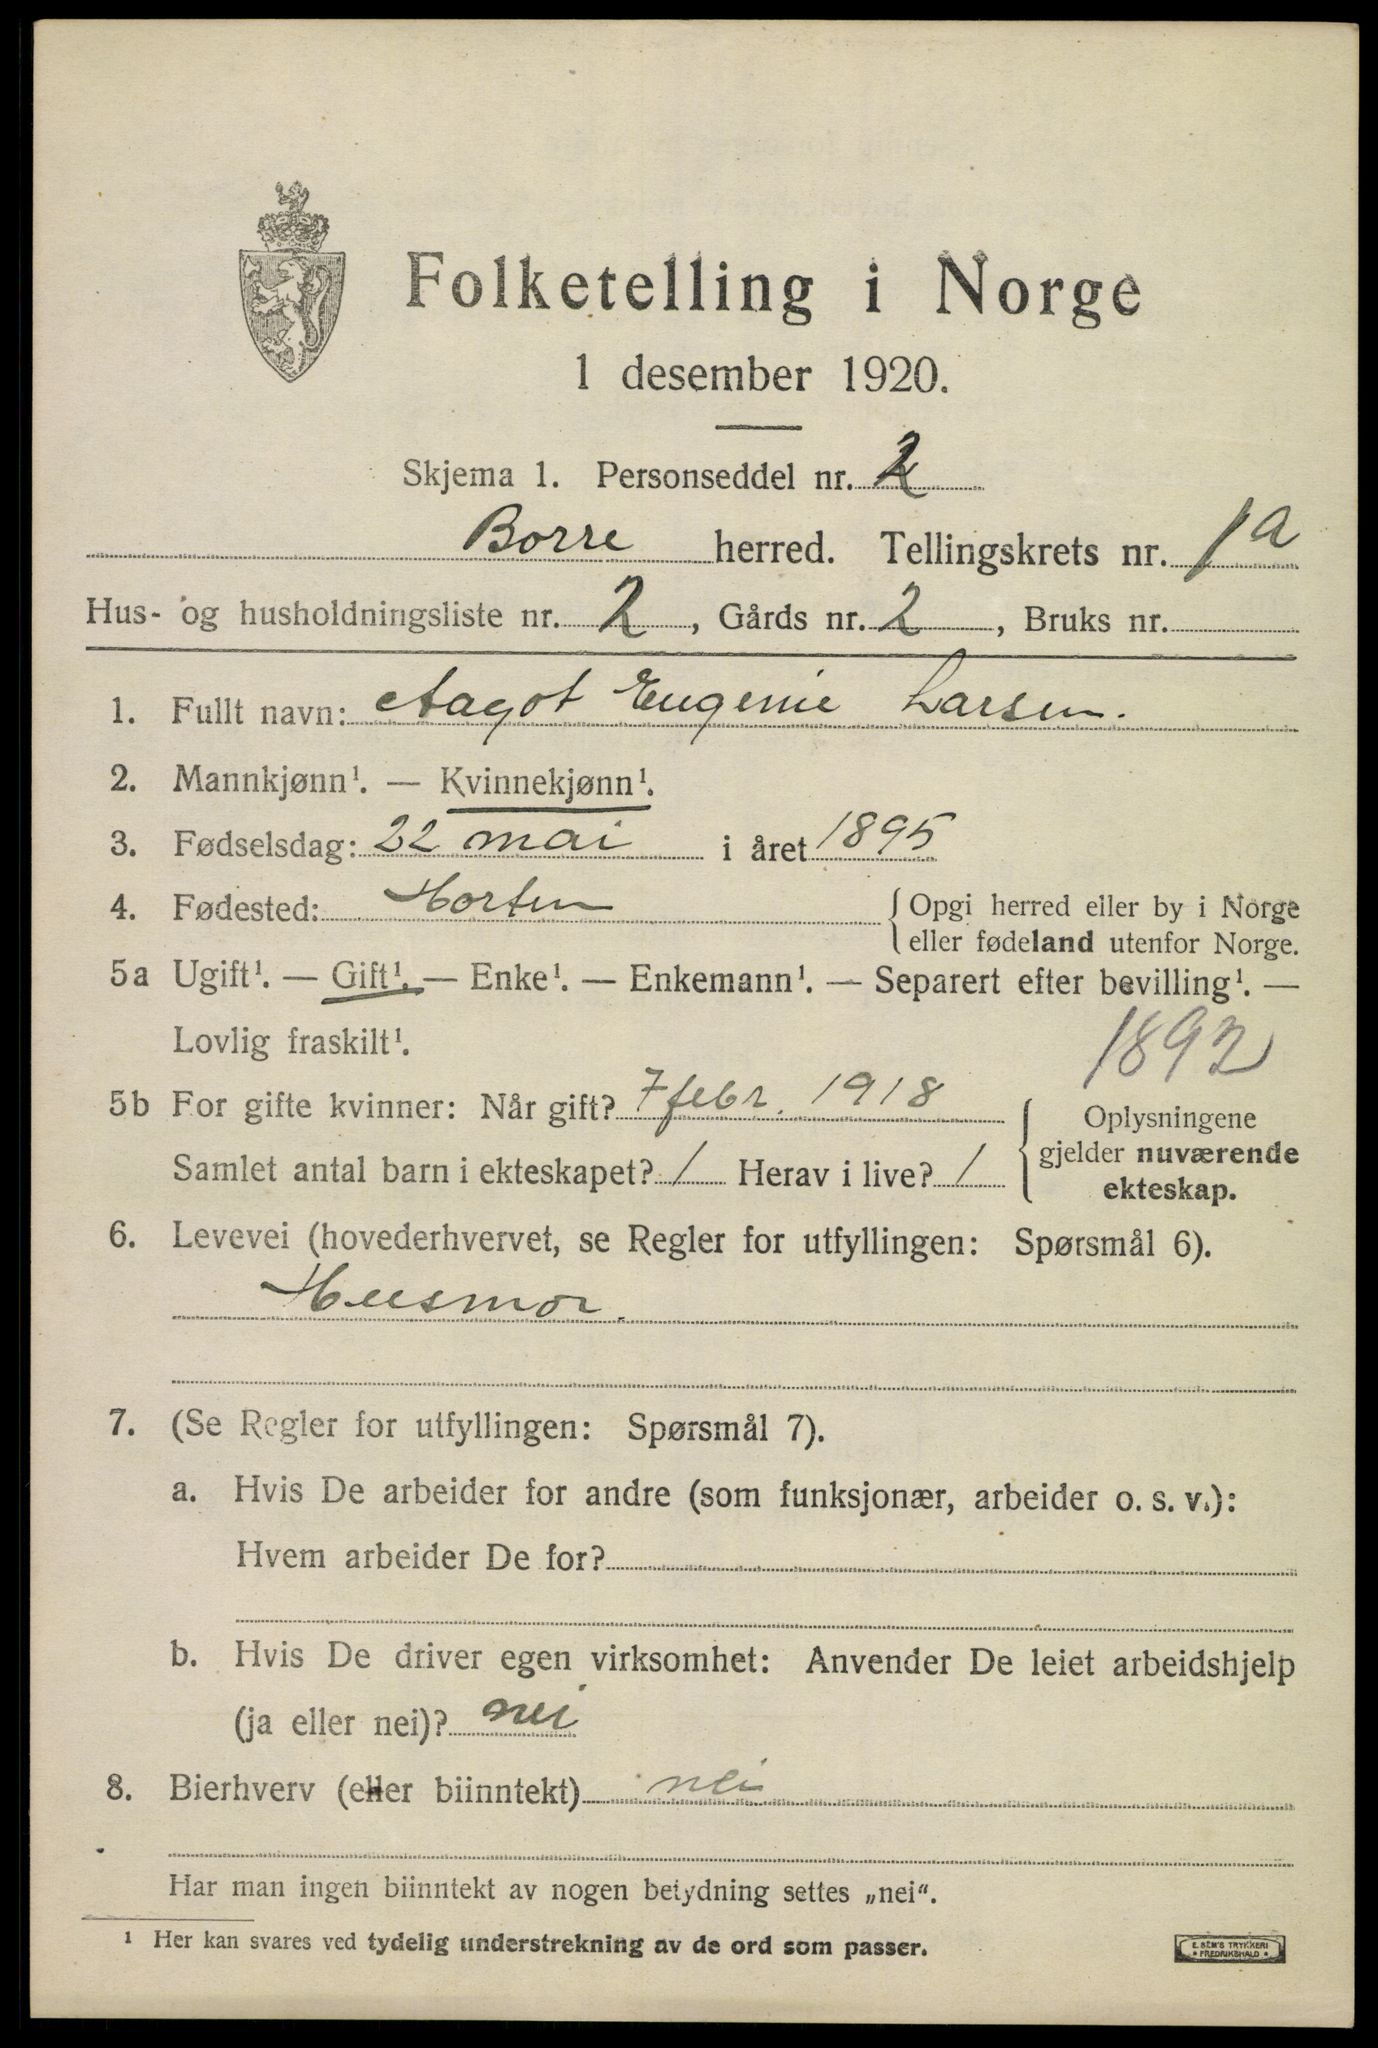 Folketelling i Norge
1 desember 1920.
Skjema 1. Personseddel nr. 2
Borre herred. Tellingskrets nr. 1a
Hus- og husholdningsliste nr. 2, Gårds nr. 2, Bruks nr.
1. Fullt navn: Aagot Eugenie Larsen.
2. Mannkjønn¹. — Kvinnekjønn¹.
3. Fødselsdag: 22 mai i året 1895
4. Fødested: Horten { Opgi herred eller by i Norge
eller fødeland utenfor Norge.
5a Ugift¹. — Gift¹. — Enke¹. — Enkemann¹. — Separert efter bevilling¹. —
Lovlig fraskilt¹. 1892
5b For gifte kvinner: Når gift? 7 febr. 1918 { Oplysningene
gjelder nuværende
ekteskap.
Samlet antal barn i ekteskapet? 1 Herav i live? 1
6. Levevei (hovederhvervet, se Regler for utfyllingen: Spørsmål 6).
Husmor.
7. (Se Regler for utfyllingen: Spørsmål 7).
a. Hvis De arbeider for andre (som funksjonær, arbeider o. s. v.):
Hvem arbeider De for?
b. Hvis De driver egen virksomhet: Anvender De leiet arbeidshjelp
(ja eller nei)? nei
8. Bierhverv (eller biinntekt) nei
Har man ingen biinntekt av nogen betydning settes „nei“.
¹ Her kan svares ved tydelig understrekning av de ord som passer.
E. SEM'S TRYKKERI
* FREDRIKSHALD *